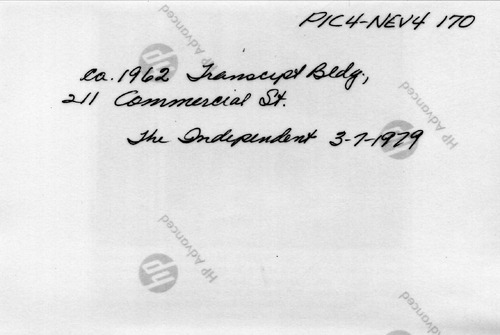 PIC4-NEV4 170
ca. 1962 Transcipt Bldg,
211 Commercial St.
The Independent 3-7-1979
hp HP Advanced
hp HP Advanced
hp HP Advanced
hp HP Advanced
hp HP Advanced